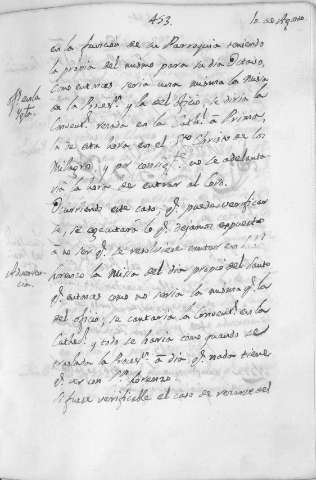 453.
10 de Agosto
en la funcion de su Parroquia teniendo
la propia del mismo para su dia Octavo,
Como entonces seria una misma la Misa
de la y la del Oficio, se diria la
Convent.l rezada en la Cath.l a Prima,
la de esta hora en el S.to Christo de los
Milagros y por conseq.a no se adelanta-
ria la hora de entrar al Coro.
Ocurriendo este caso, q.e puede verificar-
se, se egecutará lo q.e dejamos expuesto
á no ser q.e se resolviese cantar en
Lorenzo la Misa del dia propio del Santo
q.e entonces como no seria la misma q.e la
del oficio, se cantaria la Convent.l en la
Cathed.l y todo se haria como quando se
traslada la á dia q.e nada tiene
q.e ver con S.n Lorenzo.
Si fuese verificable el caso de reunirse el
Adverten-
cia.